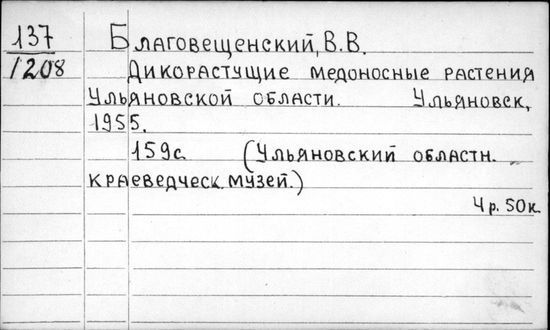 137 Благовещенский, В.В.
1208 Дикорастущие медоносные растения
Ульяновской области. Ульяновск,
1955.
159с. (Ульяновский областн.
краеведческ. музей.)
4р. 50к.